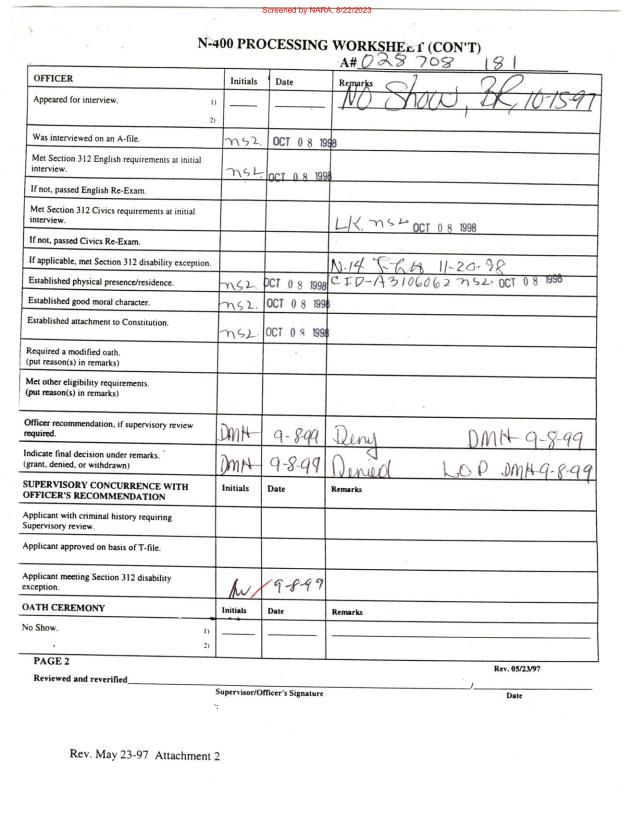 Screened by NARA, 8/22/2023
N-400 PROCESSING WORKSHEET (CON'T)
A# 028 708 181
OFFICER Initials Date Remarks
Appeared for interview. 1) No Show, BR, 10-15-97
2)
Was interviewed on an A-file. nsz. OCT 08 1998
Met Section 312 English requirements at initial
interview. nsz. OCT 08 1998
If not, passed English Re-Exam.
Met Section 312 Civics requirements at initial
interview. LK. nsz OCT 08 1998
If not, passed Civics Re-Exam.
If applicable, met Section 312 disability exception. N-14 11-20-98
Established physical presence/residence. nsz. OCT 08 1998 CID-A3106062 nsz. OCT 08 1998
Established good moral character. nsz. OCT 08 1998
Established attachment to Constitution.
nsz. OCT 08 1998
Required a modified oath.
(put reason(s) in remarks)
Met other eligibility requirements.
(put reason(s) in remarks)
Officer recommendation, if supervisory review
required. DMH 9-8-99 Deny DMH 9-8-99
Indicate final decision under remarks.
(grant, denied, or withdrawn) DMH 9-8-99 Denied LOP DMH 9-8-99
SUPERVISORY CONCURRENCE WITH
OFFICER'S RECOMMENDATION Initials Date Remarks
Applicant with criminal history requiring
Supervisory review.
Applicant approved on basis of T-file.
Applicant meeting Section 312 disability
exception. 9-8-99
OATH CEREMONY Initials Date Remarks
No Show. 1)
2)
PAGE 2 Rev. 05/23/97
Reviewed and reverified /
Supervisor/Officer's Signature Date
Rev. May 23-97 Attachment 2